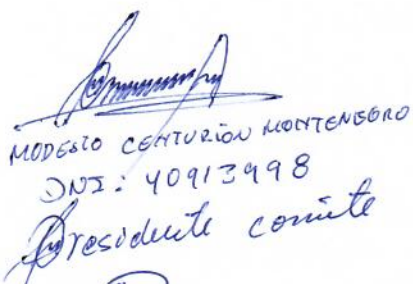 MODESTO CENTURIÓN MONTENEGRO
DNI: 40913998
Presidente comite